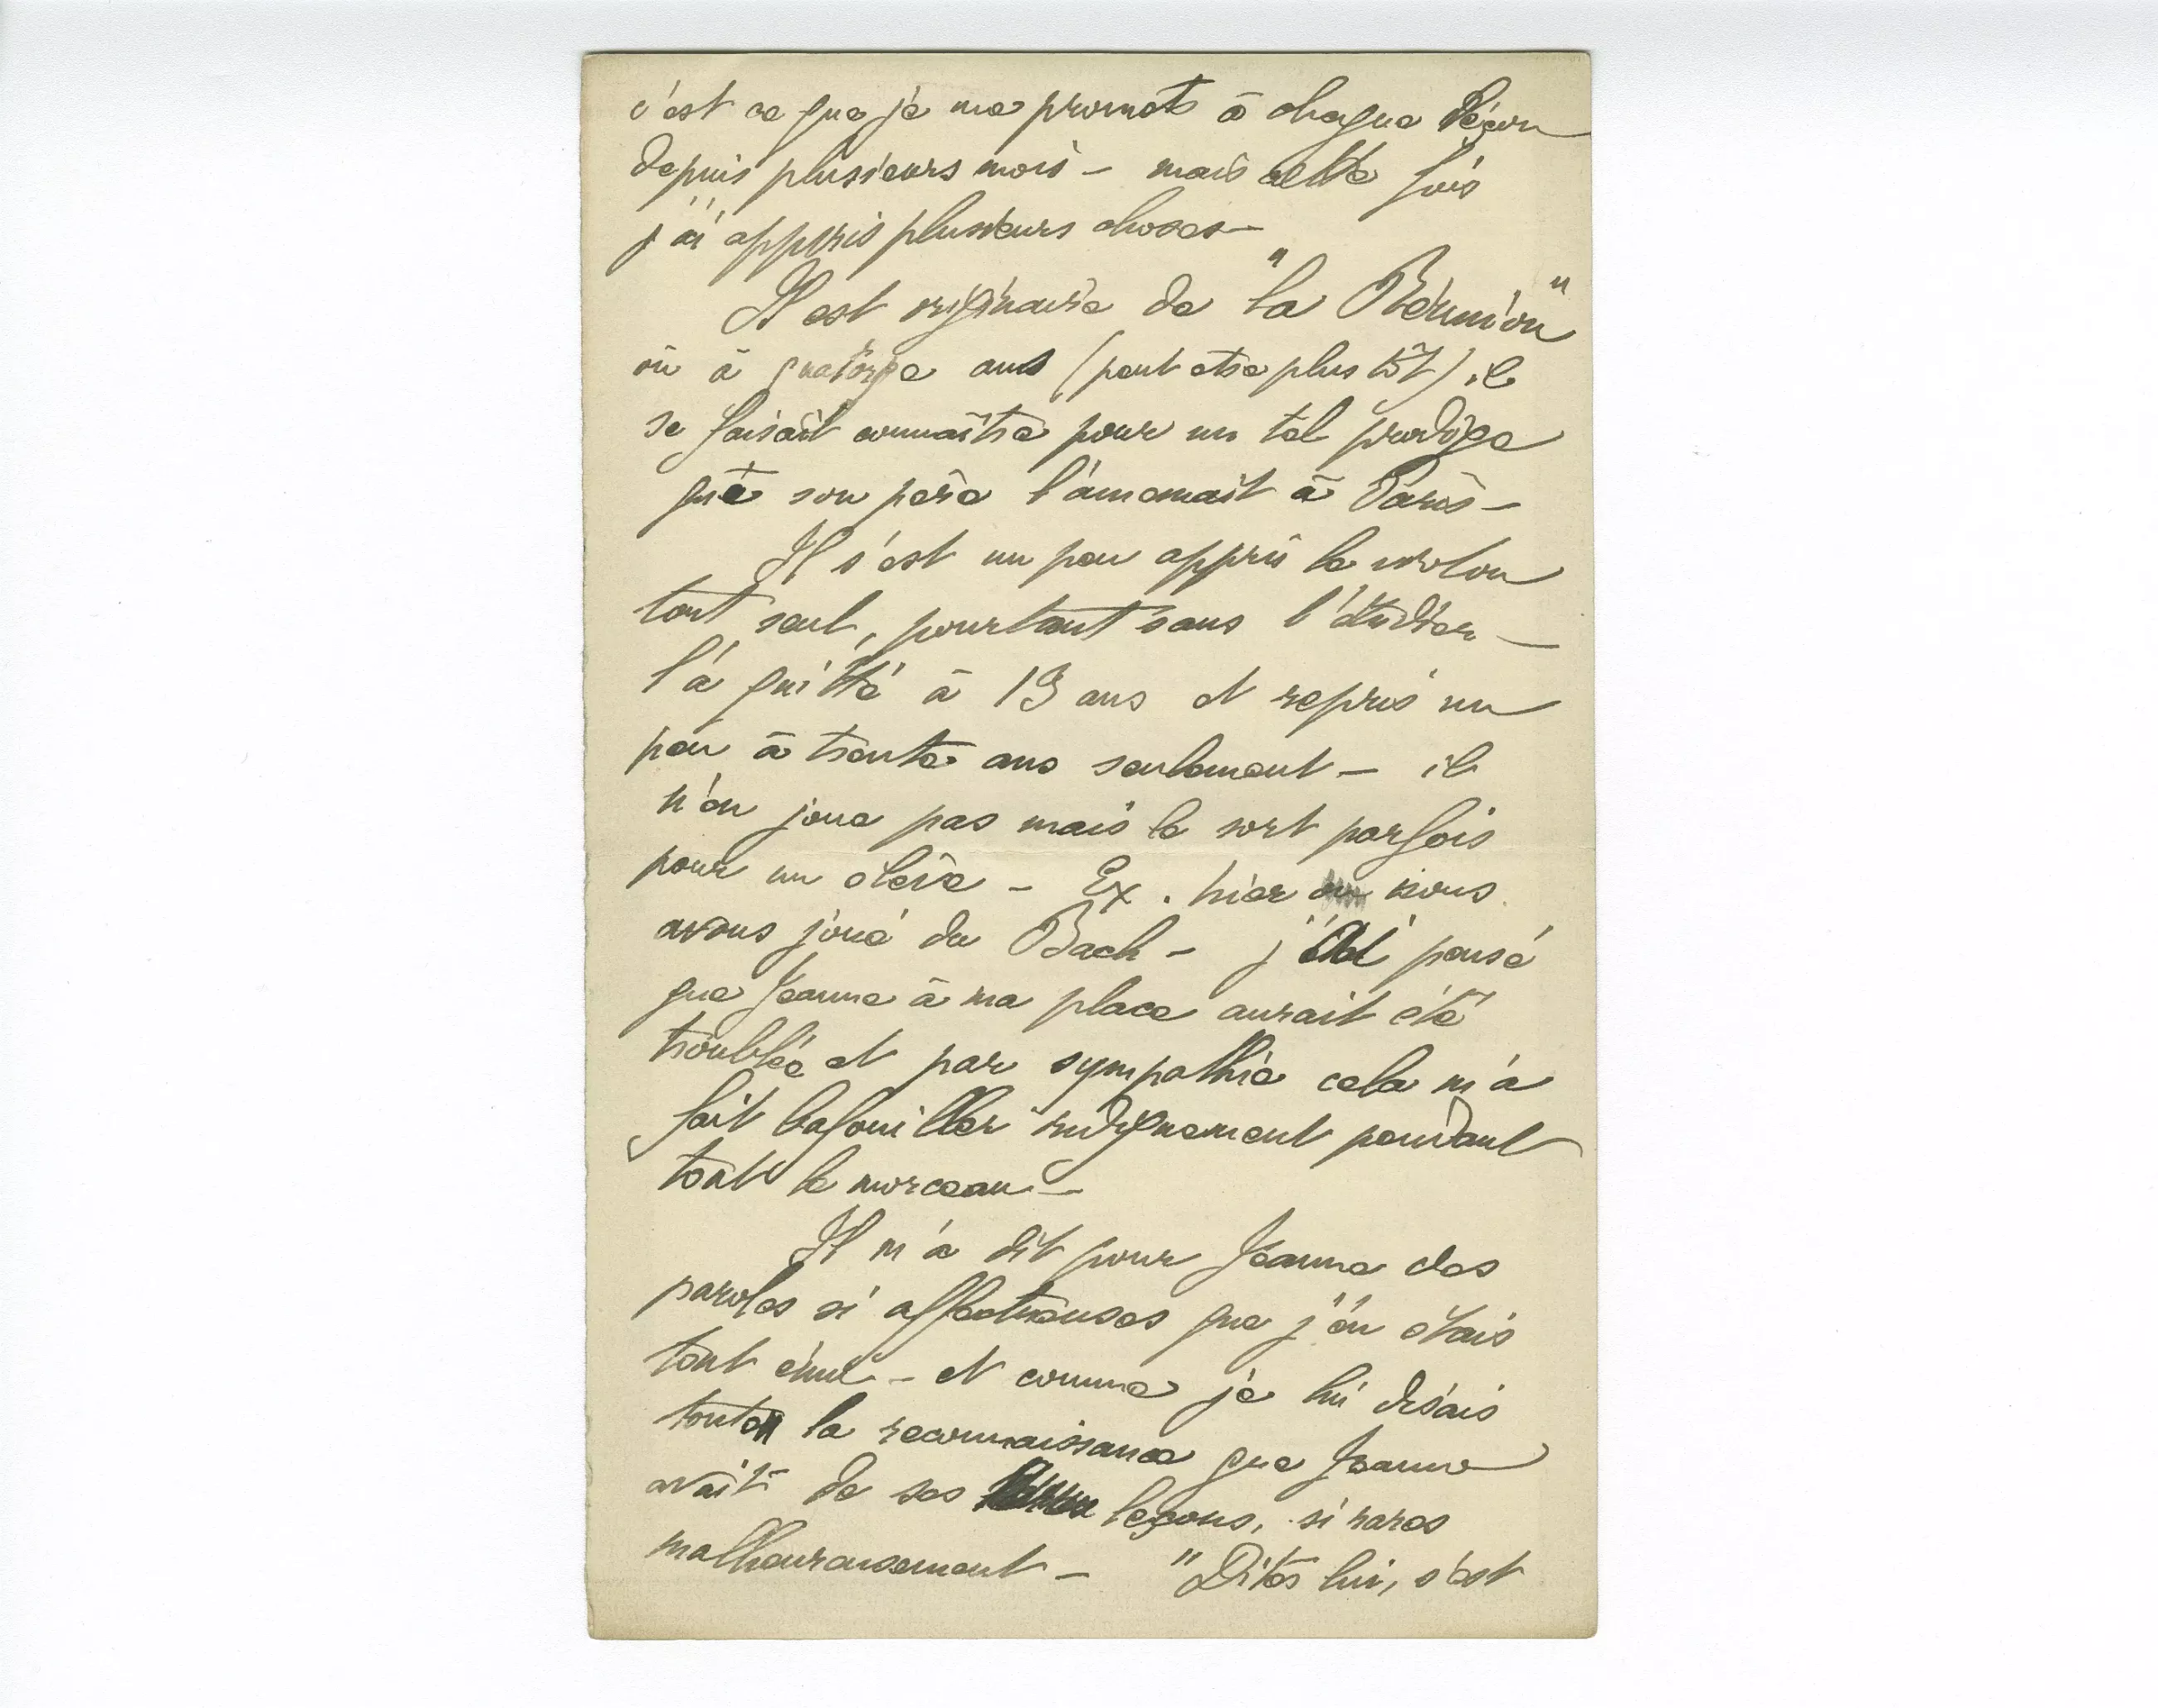 c'est ce que je me promets à chaque leçon
depuis plusieurs mois – mais cette fois
j'ai appris plusieurs choses –
Il est originaire de "la Réunion"
où à quatorze ans (peut etre plus tôt) il
se faisait connaître pour un tel prodige
que son père l'amenait à Paris –
Il s'est un peu appris le violon
tout seul, pourtant sans l'étudier –
l'a quitté à 13 ans et repris un
peu à trente ans seulement – il
n'en joue pas mais le sort parfois
pour un élève – Ex. hier nous
avons joué du Bach – j'ai pensé
que Jeanne à ma place aurait été
troublée et par sympathie cela m'a
fait bafouiller indignement pendant
tout le morceau –
Il m'a dit pour Jeanne des
paroles si affectueuses que j'en étais
tout ému – et comme je lui disais
toute la reconnaissance que Jeanne
avait de ses leçons, si rares
malheureusement – "Dites lui, s'est